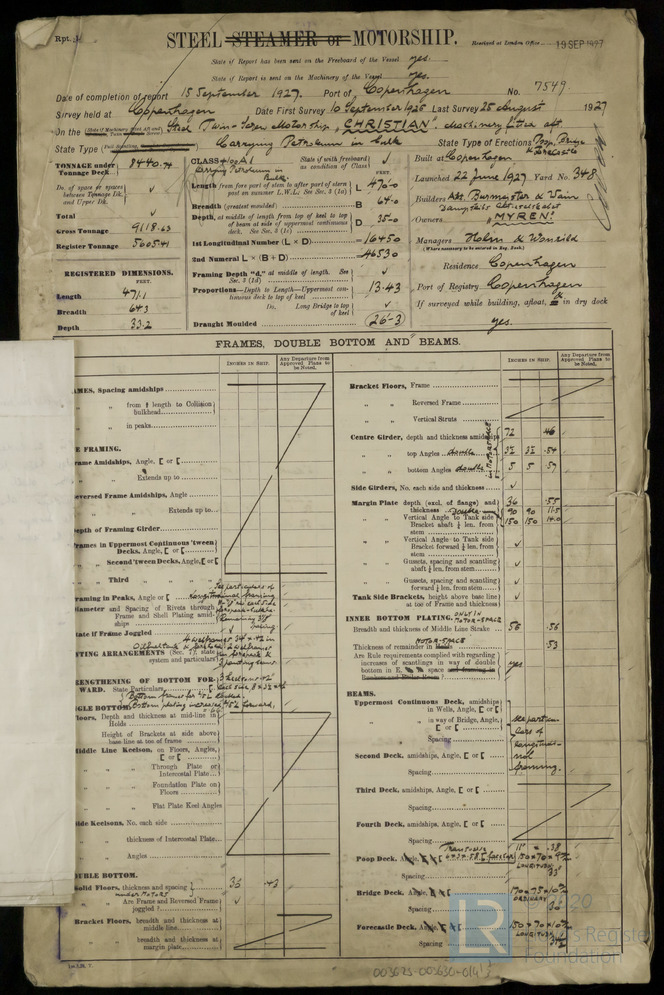 Rpt.
STEEL STEAMER or MOTORSHIP.
Received at London Office 19 SEP 1927
State if Report has been sent on the Freeboard of the Vessel yes.
State if Report is sent on the Machinery of the Vessel yes.
Date of completion of report 15 September 1927. Port of Copenhagen No. 7549
Survey held at Copenhagen Date First Survey 10 September 1926 Last Survey 25 August 1927
On the Steel Twin-Screw Motorship "CHRISTIAN", Machinery fitted aft
State Type Carrying Petroleum in bulk State Type of Erections Poop, Bridge & Forecastle
TONNAGE under Tonnage Deck 8440.74
Do. of space or spaces between Tonnage Dk. and Upper Dk. ✓
Total ✓
Gross Tonnage 9118.63
Register Tonnage 5605.41
REGISTERED DIMENSIONS.
FEET.
Length 471.1
Breadth 64.3
Depth 33.2
CLASS +100A1 Carrying Petroleum in Bulk.
State if with freeboard as condition of Class ✓
FEET.
Length from fore part of stem to after part of stern post on summer L.W.L. See Sec. 3 (1a) L 470.0
Breadth (greatest moulded) B 64.0
Depth, at middle of length from top of keel to top of beam at side of uppermost continuous deck. See Sec. 3 (1c) D 35.0
1st Longitudinal Number (L × D) = 16450
2nd Numeral L × (B + D) = 46530
Framing Depth "d," at middle of length. See Sec. 3 (1d) ✓
Proportions—Depth to Length—Uppermost continuous deck to top of keel 13.43
Do. Long Bridge to top of keel ✓
Draught Moulded 26-3
Built at Copenhagen
Launched 22 June 1927 Yard No. 348
Builders Burmeister & Wain
Owners "MYREN"
Managers Holm & Wonsild
(Where necessary to be entered in Reg. Book.)
Residence Copenhagen
Port of Registry Copenhagen
If surveyed while building, afloat, & in dry dock
yes.
FRAMES, DOUBLE BOTTOM AND BEAMS.
INCHES IN SHIP. Any Departure from Approved Plans to be Noted.
AMES, Spacing amidships
" " from length to Collision bulkhead
" " in peaks
E FRAMING.
rame Amidships, Angle, [ or [
" " Extends up to
eversed Frame Amidships, Angle
" " Extends up to
epth of Framing Girder
rames in Uppermost Continuous 'tween Decks, Angle, [ or [
" Second 'tween Decks, Angle, [ or [
" Third " " "
raming in Peaks, Angle or [
iameter and Spacing of Rivets through Frame and Shell Plating amidships
tate if Frame Joggled ✓
TING ARRANGEMENTS (Sec. 7), state system and particulars
RENGTHENING OF BOTTOM FORWARD. State Particulars
GLE BOTTOM.
loors, Depth and thickness at mid-line in Holds
Height of Brackets at side above base line at toe of frame
iddle Line Keelson, on Floors, Angles, [ or [
" " Through Plate or Intercostal Plate
" " Foundation Plate on Floors
" " Flat Plate Keel Angles
ide Keelsons, No. each side
" " thickness of Intercostal Plate
" " Angles
OUBLE BOTTOM.
olid Floors, thickness and spacing under MOTORS 36 .43
" Are Frame and Reversed Frame joggled? ✓
Bracket Floors, breadth and thickness at middle line
" " breadth and thickness at margin plate
INCHES IN SHIP. Any Departure from Approved Plans to be Noted.
Bracket Floors, Frame
" " Reversed Frame
" " Vertical Struts
Centre Girder, depth and thickness amidships 72 .46
" " top Angles double 3½ 3½ .54
" " bottom Angles double 5 5 .57
Side Girders, No. each side and thickness ✓
Margin Plate depth (excl. of flange) and thickness 36 .55
" " Vertical Angle to Tank side Bracket abaft ¼ len. from stem 90 90 11.5
150 150 14.0
" " Vertical Angle to Tank side Bracket forward ¼ len. from stem ✓
" " Gussets, spacing and scantling abaft ¼ len. from stem ✓
" " Gussets, spacing and scantling forward ¼ len. from stem ✓
Tank Side Brackets, height above base line at toe of Frame and thickness ✓
INNER BOTTOM PLATING. ONLY IN MOTOR-SPACE
Breadth and thickness of Middle Line Strake 56 .56
Thickness of remainder in MOTOR-SPACE .53
Are Rule requirements complied with regarding increases of scantlings in way of double bottom in E. space and framing in yes
BEAMS.
Uppermost Continuous Deck, amidships in Wells, Angle, [ or [
" " in way of Bridge, Angle, [ or [
Spacing
see particulars of longitudinal framing.
Second Deck, amidships, Angle, [ or [
Spacing
Third Deck, amidships, Angle, [ or [
Spacing
Fourth Deck, amidships, Angle, [ or [
Spacing
Poop Deck, Angle
Spacing 33
Bridge Deck, Angle
Spacing 30
Forecastle Deck, Angle
Spacing
LR
2020
Lloyd's Register Foundation
003625-003630-0141